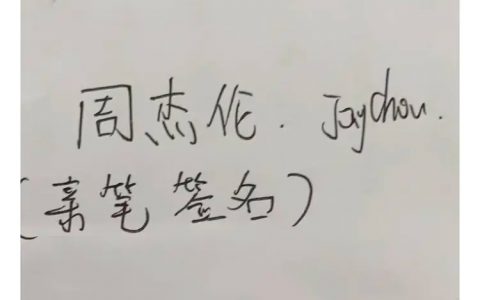 周杰伦. Jay Chou.
(亲笔签名)